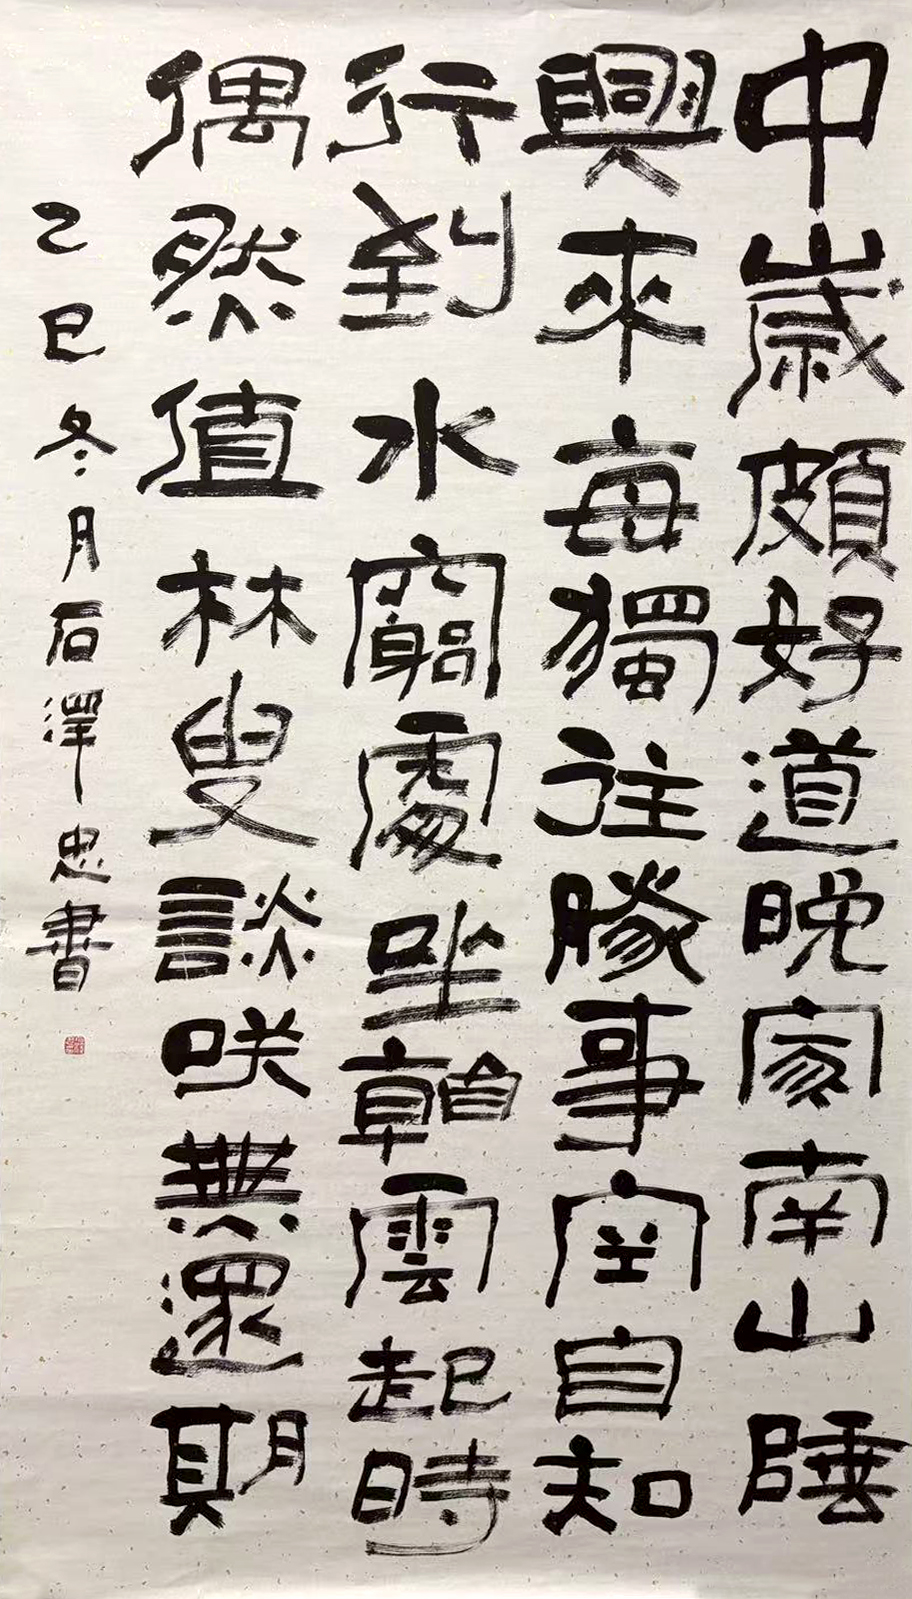 中歲頗好道晚家南山陲
興來每獨往勝事空自知
行到水窮處坐看雲起時
偶然值林叟談咲無還期
乙巳冬月石澤忠書